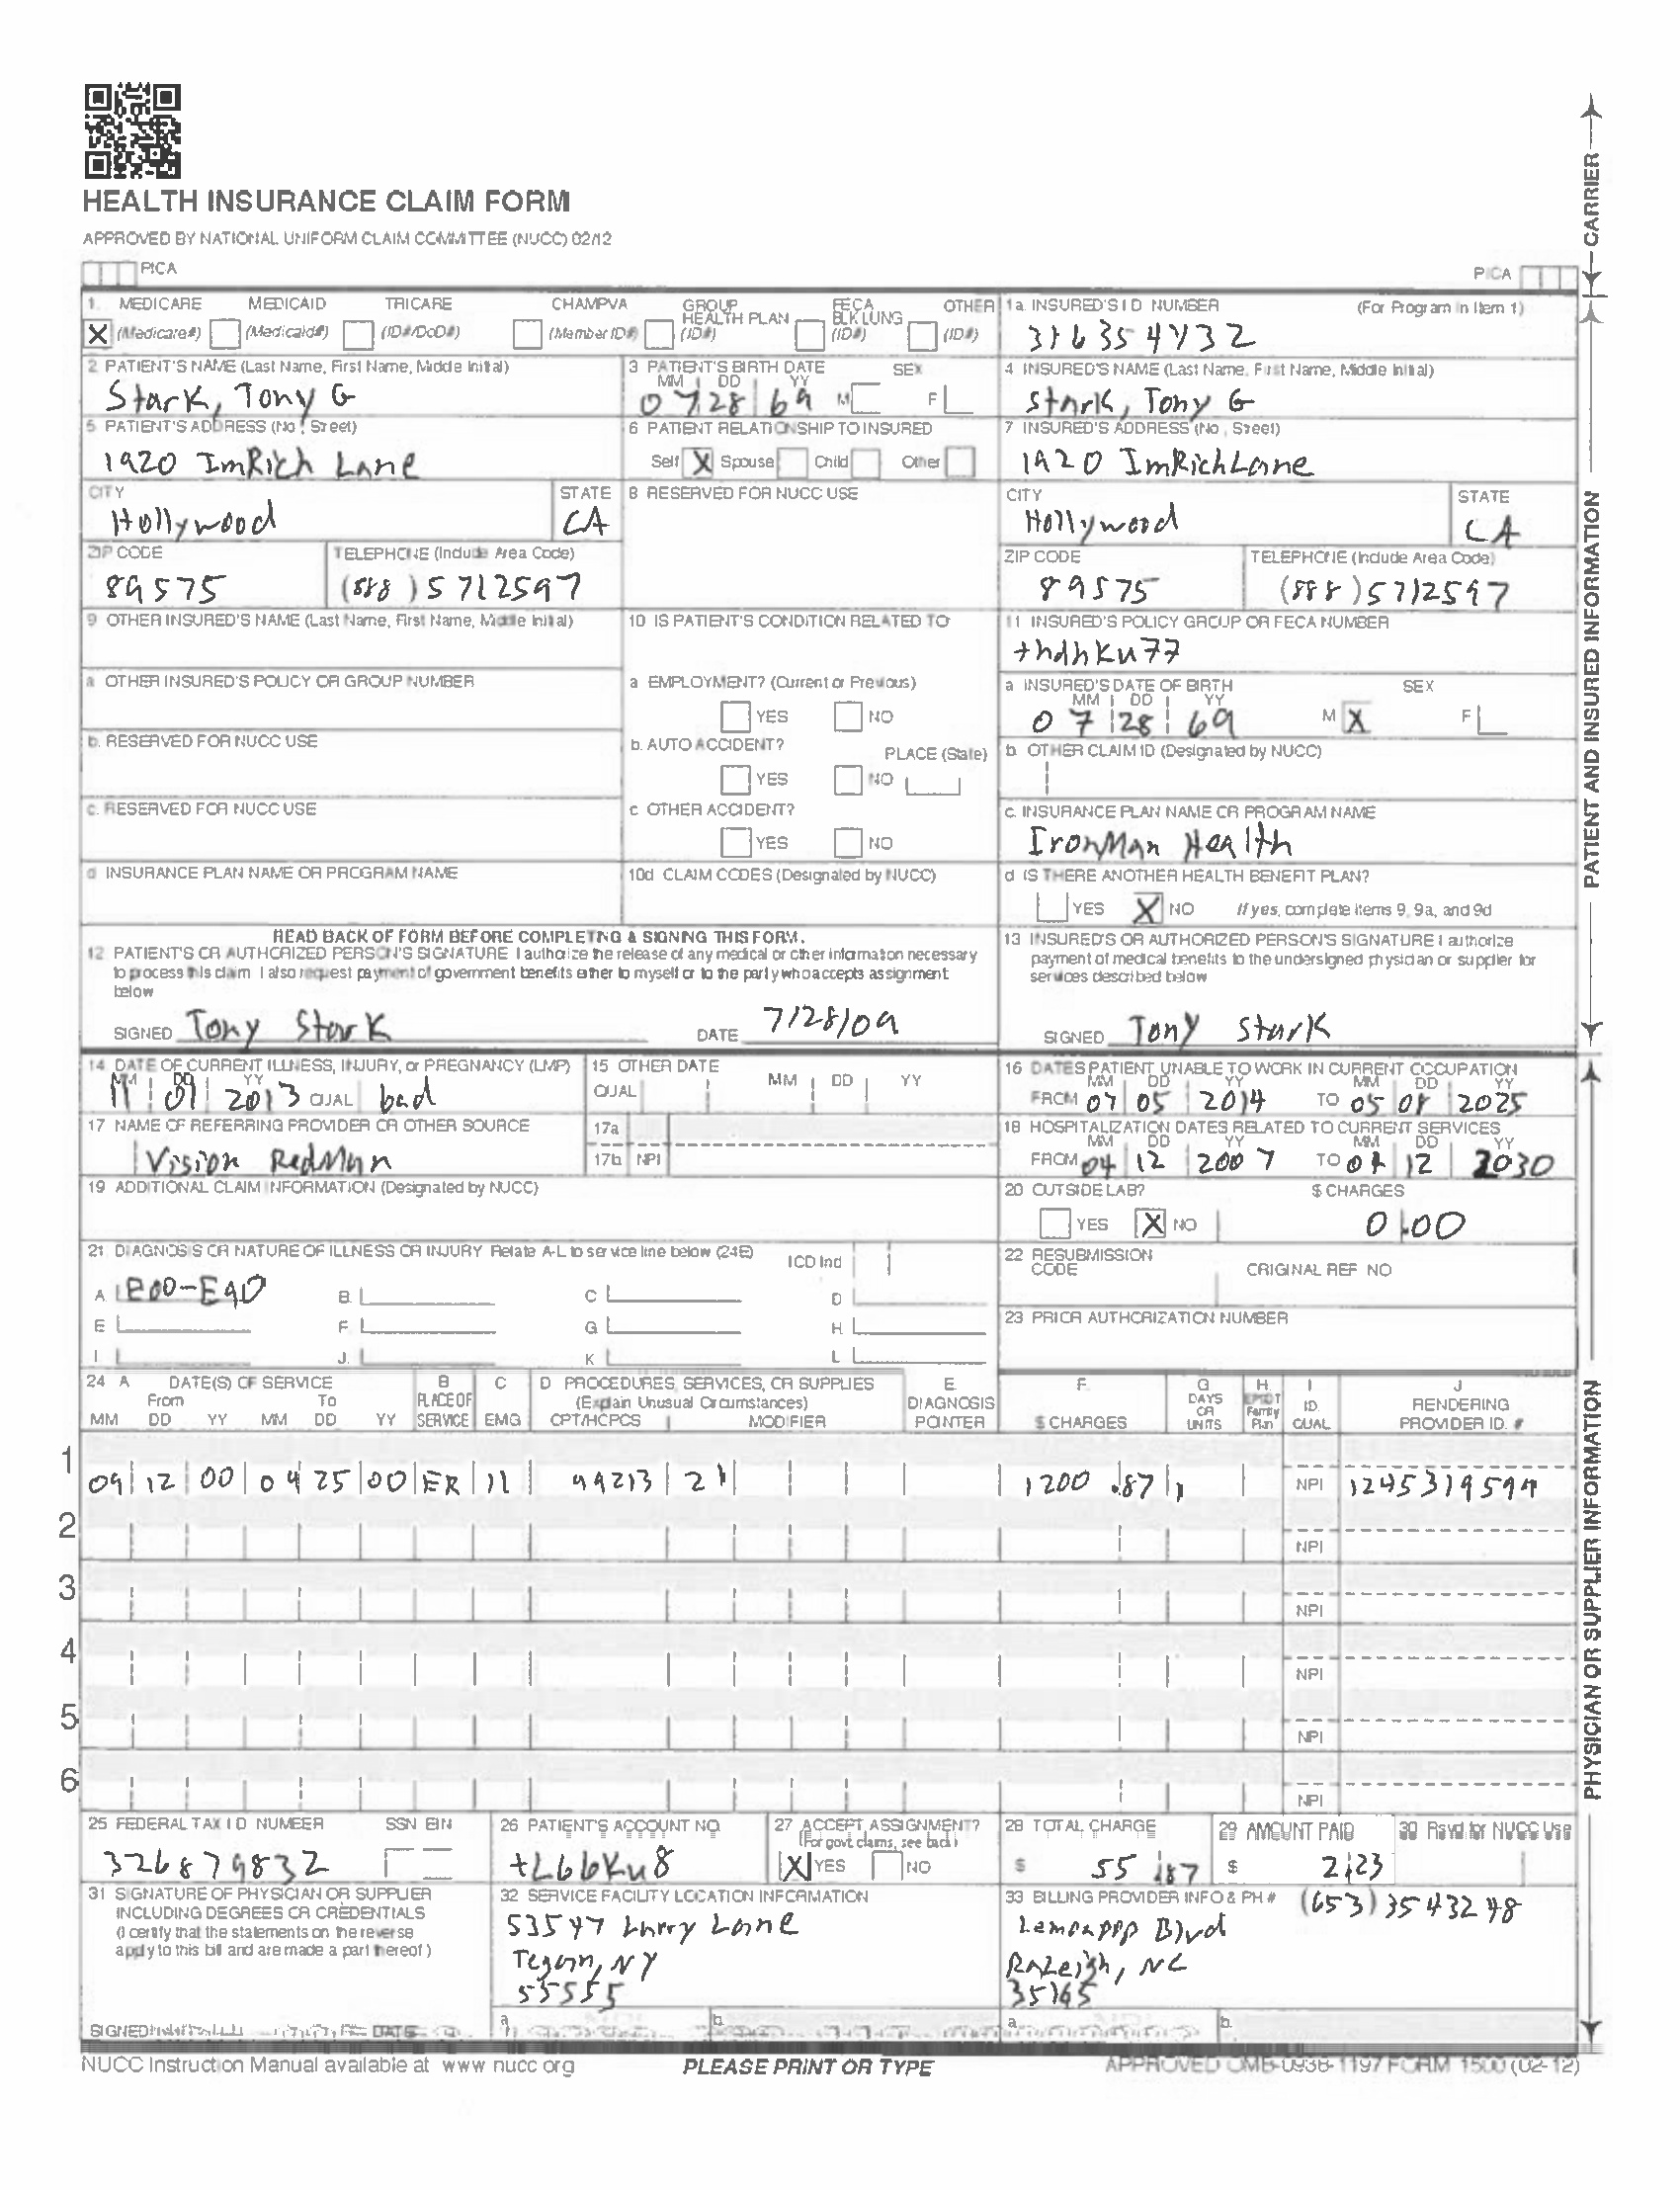 HEALTH INSURANCE CLAIM FORM
APPROVED BY NATIONAL UNIFORM CLAIM COMMITTEE (NUCC) 02/12
PICA
PICA
CARRIER
1. MEDICARE MEDICAID TRICARE CHAMPVA GROUP HEALTH PLAN FECA BLK LUNG OTHER
X (Medicare#) (Medicaid#) (ID#/DoD#) (Member ID#) (ID#) (ID#) (ID#)
1a INSURED'S I D NUMBER (For Program in Item 1)
316354732
2 PATIENT'S NAME (Last Name, First Name, Middle Initial)
Stark, Tony G
3 PATIENT'S BIRTH DATE SEX
MM DD YY
07 28 69 M F
4 INSURED'S NAME (Last Name, First Name, Middle Initial)
Stark, Tony G
5 PATIENT'S ADDRESS (No, Street)
1920 ImRich Lane
6 PATIENT RELATIONSHIP TO INSURED
Self X Spouse Child Other
7 INSURED'S ADDRESS (No, Street)
1920 ImRichLane
CITY STATE
Hollywood CA
8 RESERVED FOR NUCC USE
CITY STATE
Hollywood CA
ZIP CODE TELEPHONE (Include Area Code)
89575 (888) 5712597
ZIP CODE TELEPHONE (Include Area Code)
89575 (888) 5712597
9 OTHER INSURED'S NAME (Last Name, First Name, Middle Initial)
10 IS PATIENT'S CONDITION RELATED TO
11 INSURED'S POLICY GROUP OR FECA NUMBER
thdhku77
a OTHER INSURED'S POLICY OR GROUP NUMBER
a EMPLOYMENT? (Current or Previous)
YES NO
a INSURED'S DATE OF BIRTH SEX
MM DD YY
07 28 69 M X F
b. RESERVED FOR NUCC USE
b. AUTO ACCIDENT? PLACE (State)
YES NO
b OTHER CLAIM ID (Designated by NUCC)
c. RESERVED FOR NUCC USE
c OTHER ACCIDENT?
YES NO
c. INSURANCE PLAN NAME OR PROGRAM NAME
IronMan Health
d INSURANCE PLAN NAME OR PROGRAM NAME
10d CLAIM CODES (Designated by NUCC)
d IS THERE ANOTHER HEALTH BENEFIT PLAN?
YES X NO If yes, complete items 9, 9a, and 9d
PATIENT AND INSURED INFORMATION
READ BACK OF FORM BEFORE COMPLETING & SIGNING THIS FORM.
12 PATIENT'S OR AUTHORIZED PERSON'S SIGNATURE I authorize the release of any medical or other information necessary
to process this claim I also request payment of government benefits either to myself or to the party who accepts assignment
below
SIGNED Tony Stark DATE 7/28/09
13 INSURED'S OR AUTHORIZED PERSON'S SIGNATURE I authorize
payment of medical benefits to the undersigned physician or supplier for
services described below
SIGNED Tony Stark
14 DATE OF CURRENT ILLNESS, INJURY, or PREGNANCY (LMP)
MM DD YY
11 01 2013 QUAL bad
15 OTHER DATE
QUAL MM DD YY
16 DATES PATIENT UNABLE TO WORK IN CURRENT OCCUPATION
MM DD YY MM DD YY
FROM 07 05 2014 TO 05 08 2025
17 NAME OF REFERRING PROVIDER OR OTHER SOURCE
Vision RedMan
17a
17b NPI
18 HOSPITALIZATION DATES RELATED TO CURRENT SERVICES
MM DD YY MM DD YY
FROM 04 12 2007 TO 12 2030
19 ADDITIONAL CLAIM INFORMATION (Designated by NUCC)
20 OUTSIDE LAB? $ CHARGES
YES X NO 0.00
21 DIAGNOSIS OR NATURE OF ILLNESS OR INJURY Relate A-L to service line below (24E) ICD Ind
A E00-E90 B. C D
E F. G H.
I J. K L
22 RESUBMISSION CODE ORIGINAL REF NO
23 PRIOR AUTHORIZATION NUMBER
24 A DATE(S) OF SERVICE B C D PROCEDURES, SERVICES, OR SUPPLIES E F. G H. I J
From To PLACE OF (Explain Unusual Circumstances) DIAGNOSIS DAYS OR UNITS EPSDT Family Plan ID. QUAL RENDERING
MM DD YY MM DD YY SERVICE EMG CPT/HCPCS MODIFIER POINTER $ CHARGES PROVIDER ID. #
1 09 12 00 04 25 00 ER 11 99213 21 1200 .87 1 NPI 1245319599
2 NPI
3 NPI
4 NPI
5 NPI
6 NPI
PHYSICIAN OR SUPPLIER INFORMATION
25 FEDERAL TAX I D NUMBER SSN EIN
326879832
26 PATIENT'S ACCOUNT NO.
tL66Ku8
27 ACCEPT ASSIGNMENT?
(For govt claims, see back)
X YES NO
28 TOTAL CHARGE
$ 55 .87
29 AMOUNT PAID
$ 2.23
30 Rsvd for NUCC Use
31 SIGNATURE OF PHYSICIAN OR SUPPLIER
INCLUDING DEGREES OR CREDENTIALS
(I certify that the statements on the reverse
apply to this bill and are made a part thereof)
SIGNED DATE
32 SERVICE FACILITY LOCATION INFORMATION
53547 Larry Lane
NY
55555
a. b.
33 BILLING PROVIDER INFO & PH # (653) 3543248
Blvd
Raleigh, NC
35165
a. b.
NUCC Instruction Manual available at www nucc org
PLEASE PRINT OR TYPE
APPROVED OMB-0938-1197 FORM 1500 (02-12)